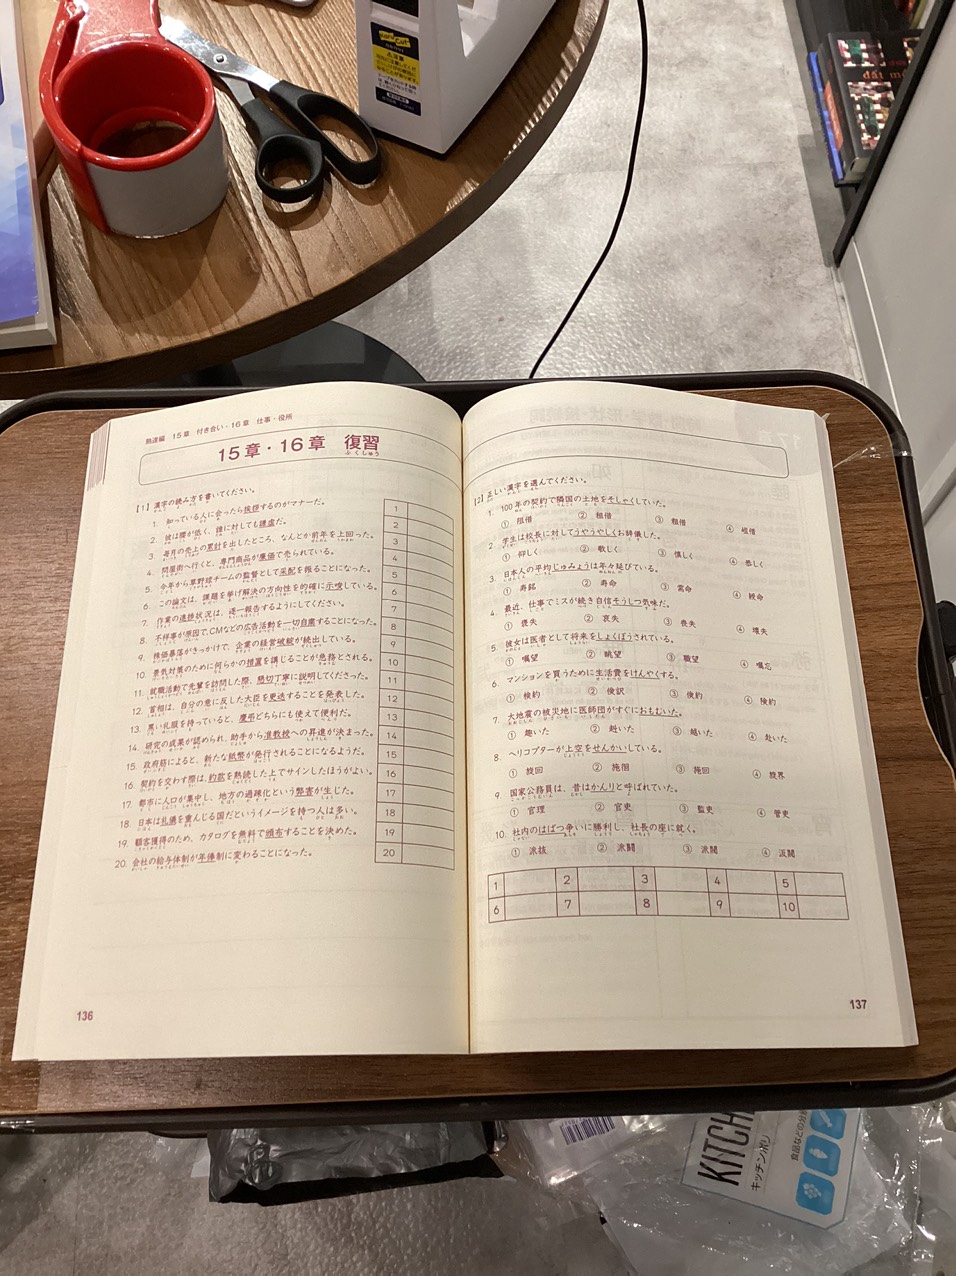 dàt m
KITCH
キッチンポリ
熟達編 15章 付き合い・16章 仕事・役所
15章・16章 復習
ふくしゅう
【1】漢字の読み方を書いてください。
1. 知っている人に会ったら挨拶するのがマナーだ。
2. 彼は腰が低く、誰に対しても謙虚だ。
3. 毎月の売上の累計を出したところ、なんとか前年を上回った。
4. 問屋街へ行くと、専門商品が廉価で売られている。
5. 今年から草野球チームの監督として采配を振ることになった。
6. この論文は、課題を挙げ解決の方向性を的確に示唆している。
7. 作業の進捗状況は、逐一報告するようにしてください。
8. 不祥事が原因で、CMなどの広告活動を一切自粛することになった。
9. 株価暴落がきっかけで、企業の経営破綻が続出している。
10. 景気対策のために何らかの措置を講じることが急務とされる。
11. 就職活動で先輩を訪問した際、懇切丁寧に説明してくださった。
12. 首相は、自分の意に反した大臣を更迭することを発表した。
13. 黒い礼服を持っていると、慶弔どちらにも使えて便利だ。
14. 研究の成果が認められ、助手から准教授への昇進が決まった。
15. 政府筋によると、新たな紙幣が発行されることになるようだ。
16. 契約を交わす際は、約款を熟読した上でサインしたほうがよい。
17. 都市に人口が集中し、地方の過疎化という弊害が生じた。
18. 日本は礼儀を重んじる国だというイメージを持つ人は多い。
19. 顧客獲得のため、カタログを無料で頒布することを決めた。
20. 会社の給与体制が年俸制に変わることになった。
1
2
3
4
5
6
7
8
9
10
11
12
13
14
15
16
17
18
19
20
136
【2】正しい漢字を選んでください。
1. 100年の契約で隣国の土地をそしゃくしていた。
① 阻借 ② 租借 ③ 粗借 ④ 狙借
2. 学生は校長に対してうやうやしくお辞儀した。
① 仰しく ② 敬しく ③ 慎しく ④ 恭しく
3. 日本人の平均じゅみょうは年々延びている。
① 寿銘 ② 寿命 ③ 需命 ④ 授命
4. 最近、仕事でミスが続き自信そうしつ気味だ。
① 喪失 ② 哀失 ③ 喪失 ④ 壊失
5. 彼女は医者として将来をしょくぼうされている。
① 嘱望 ② 眺望 ③ 職望 ④ 嘱忘
6. マンションを買うために生活費をけんやくする。
① 検約 ② 倹訳 ③ 倹約 ④ 険約
7. 大地震の被災地に医師団がすぐにおもむいた。
① 趣いた ② 赴いた ③ 越いた ④ 赴いた
8. ヘリコプターが上空をせんかいしている。
① 旋回 ② 施徊 ③ 施回 ④ 旋界
9. 国家公務員は、昔はかんりと呼ばれていた。
① 官理 ② 官吏 ③ 監吏 ④ 管吏
10. 社内のはばつ争いに勝利し、社長の座に就く。
① 派抜 ② 派閥 ③ 派閥 ④ 派閥
1 2 3 4 5
6 7 8 9 10
137